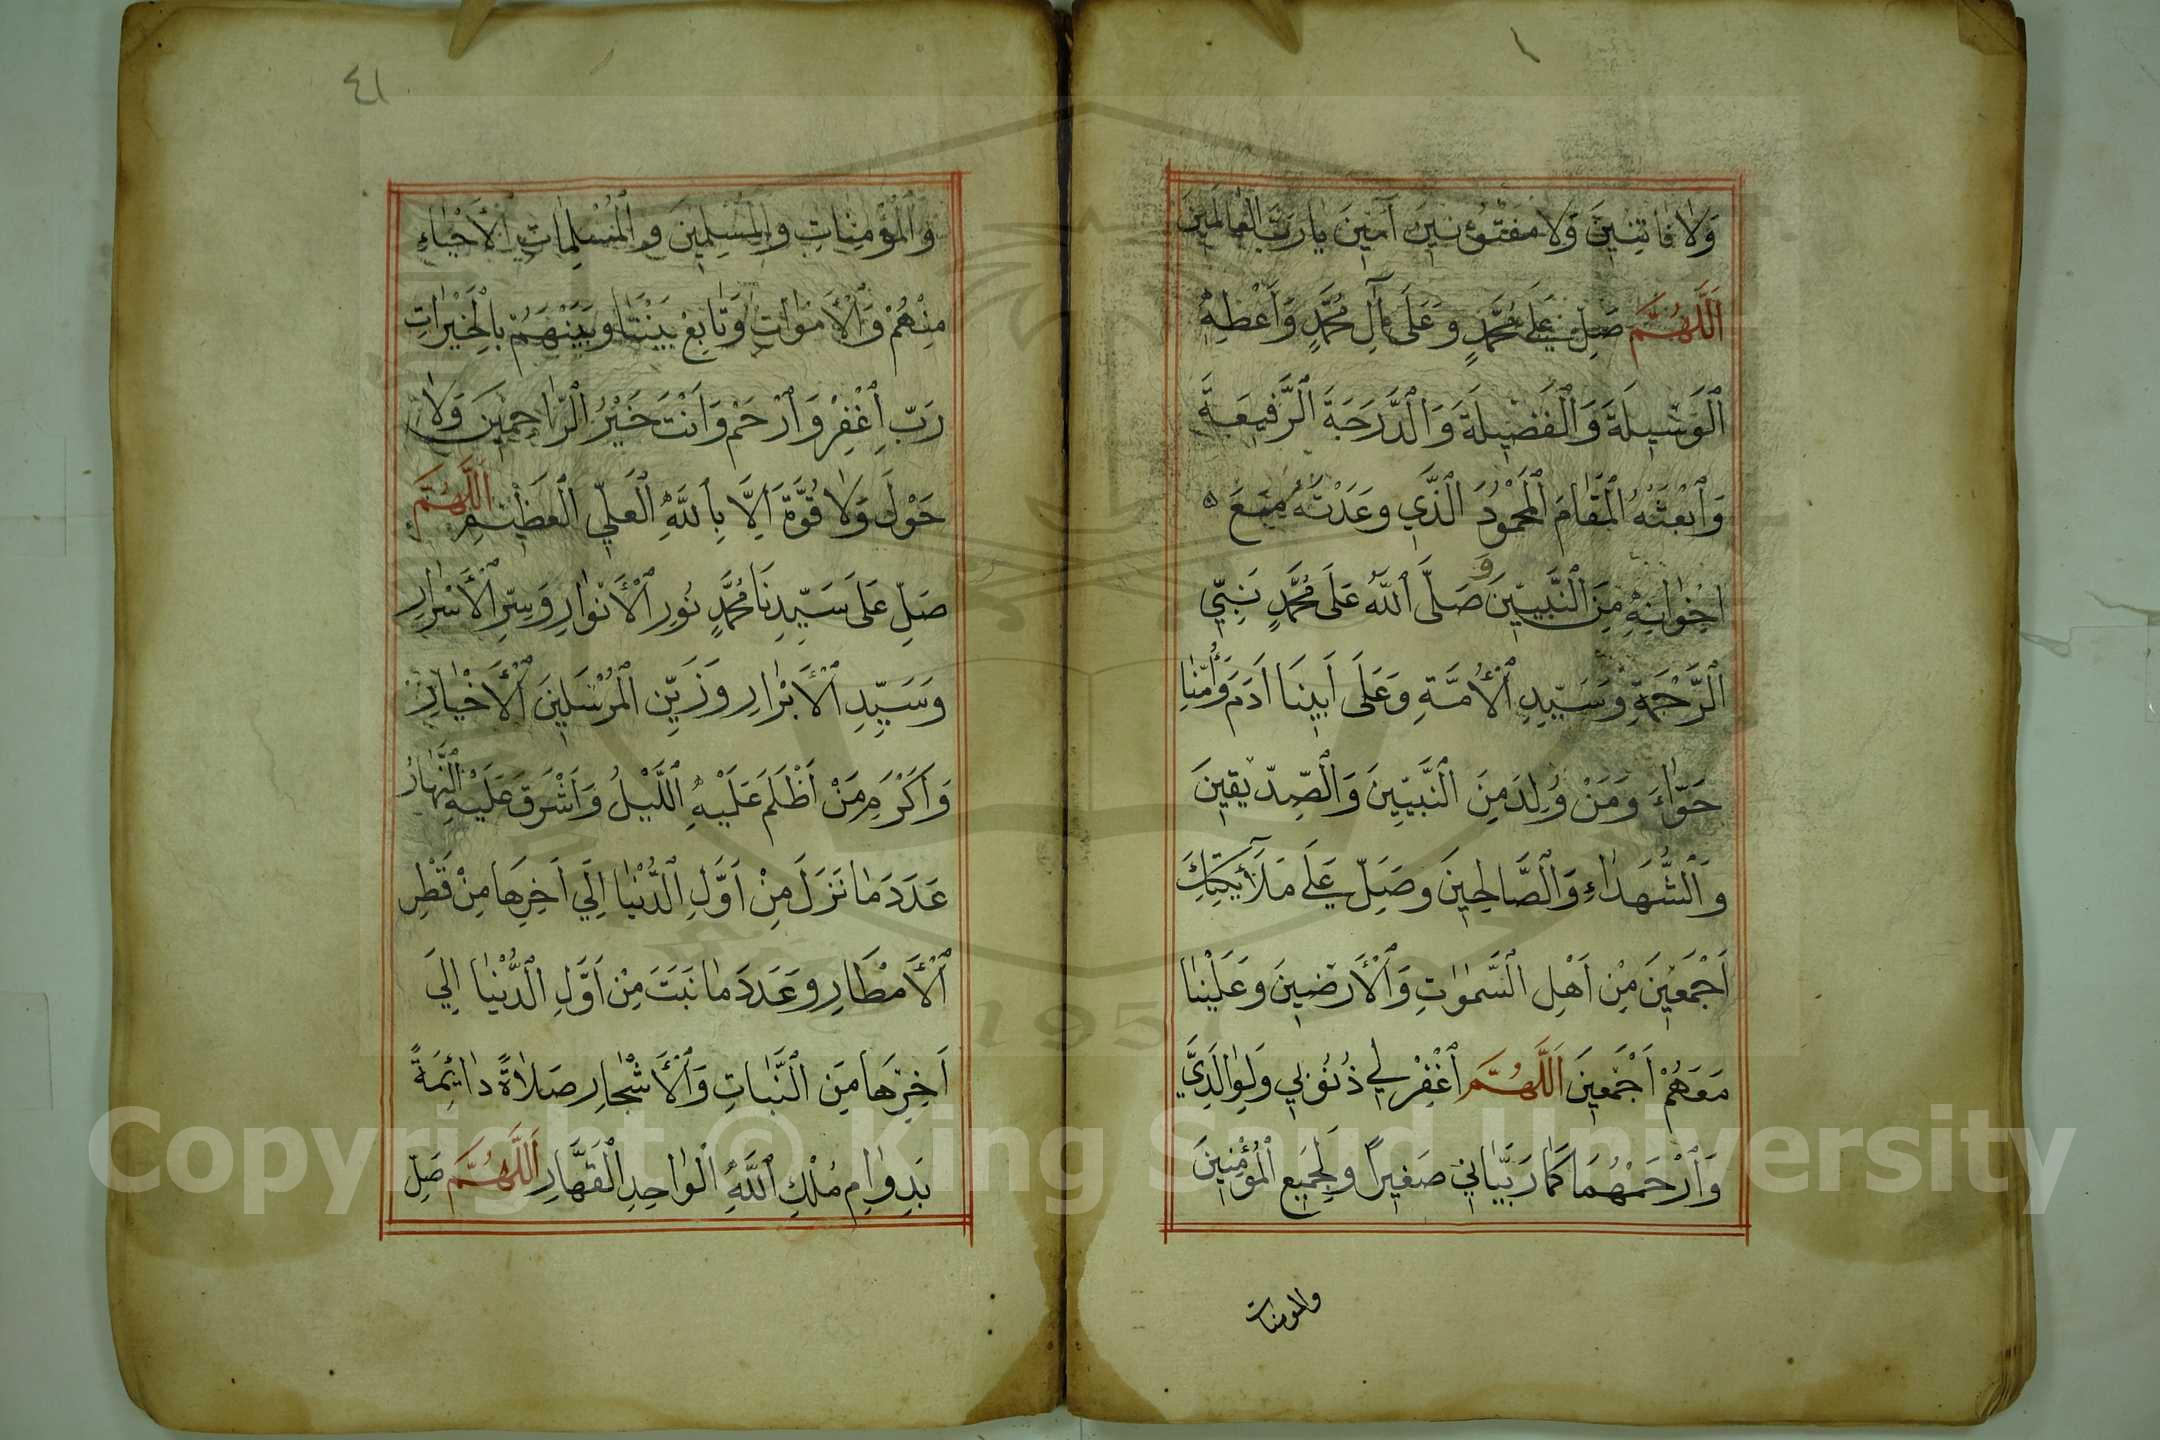 وَلَا فَاتِنِينَ وَلَا مَفْتُونِينَ آمِينَ يَا رَبَّ الْعَالَمِينَ
اَللّٰهُمَّ صَلِّ عَلَى مُحَمَّدٍ وَعَلَى آلِ مُحَمَّدٍ وَأَعْطِهِ
ٱلْوَسِيلَةَ وَٱلْفَضِيلَةَ وَٱلدَّرَجَةَ ٱلرَّفِيعَةَ
وَٱبْعَثْهُ ٱلْمَقَامَ ٱلْمَحْمُودَ ٱلَّذِي وَعَدْتَهُ مَعَ
اِخْوَانِهِ مِنَ ٱلنَّبِيِّينَ وَ صَلَّى ٱللّٰهُ عَلَى مُحَمَّدٍ نَبِيِّ
ٱلرَّحْمَةِ وَسَيِّدِ ٱلْأُمَّةِ وَعَلَى أَبِينَا اَدَمَ وَأُمِّنَا
حَوَّاءَ وَمَنْ وُلِدَ مِنَ ٱلنَّبِيِّينَ وَٱلصِّدِّيقِينَ
وَٱلشُّهَدَاءِ وَٱلصَّالِحِينَ وَصَلِّ عَلَى مَلَائِكَتِكَ
اَجْمَعِينَ مِنْ اَهْلِ ٱلسَّمٰوَاتِ وَٱلْأَرَضِينَ وَعَلَيْنَا
مَعَهُمْ اَجْمَعِينَ اَللّٰهُمَّ ٱغْفِرْ لِي ذُنُوبِي وَلِوَالِدَيَّ
وَٱرْحَمْهُمَا كَمَا رَبَّيَانِي صَغِيرًا وَلِجَمِيعِ ٱلْمُؤْمِنِينَ
والمومنات
٤١
وَٱلْمُؤْمِنَاتِ وَٱلْمُسْلِمِينَ وَٱلْمُسْلِمَاتِ ٱلْأَحْيَاءِ
مِنْهُمْ وَٱلْأَمْوَاتِ وَتَابِعْ بَيْنَنَا وَبَيْنَهُمْ بِالْخَيْرَاتِ
رَبِّ اِغْفِرْ وَٱرْحَمْ وَاَنْتَ خَيْرُ ٱلرَّاحِمِينَ وَلَا
حَوْلَ وَلَا قُوَّةَ اِلَّا بِٱللّٰهِ ٱلْعَلِيِّ ٱلْعَظِيمِ اَللّٰهُمَّ
صَلِّ عَلَى سَيِّدِنَا مُحَمَّدٍ نُورِ ٱلْأَنْوَارِ وَسِرِّ ٱلْأَسْرَارِ
وَسَيِّدِ ٱلْأَبْرَارِ وَزَيْنِ ٱلْمُرْسَلِينَ ٱلْأَخْيَارِ
وَاَكْرَمِ مَنْ اَظْلَمَ عَلَيْهِ ٱللَّيْلُ وَاَشْرَقَ عَلَيْهِ ٱلنَّهَارُ
عَدَدَ مَا نَزَلَ مِنْ اَوَّلِ ٱلدُّنْيَا اِلَى اَخِرِهَا مِنْ قَطْرِ
ٱلْأَمْطَارِ وَعَدَدَ مَا نَبَتَ مِنْ اَوَّلِ ٱلدُّنْيَا اِلَى
اَخِرِهَا مِنَ ٱلنَّبَاتِ وَٱلْأَشْجَارِ صَلَاةً دَائِمَةً
بِدَوَامِ مُلْكِ ٱللّٰهِ ٱلْوَاحِدِ ٱلْقَهَّارِ اَللّٰهُمَّ صَلِّ
Copyright © King Saud University
1957